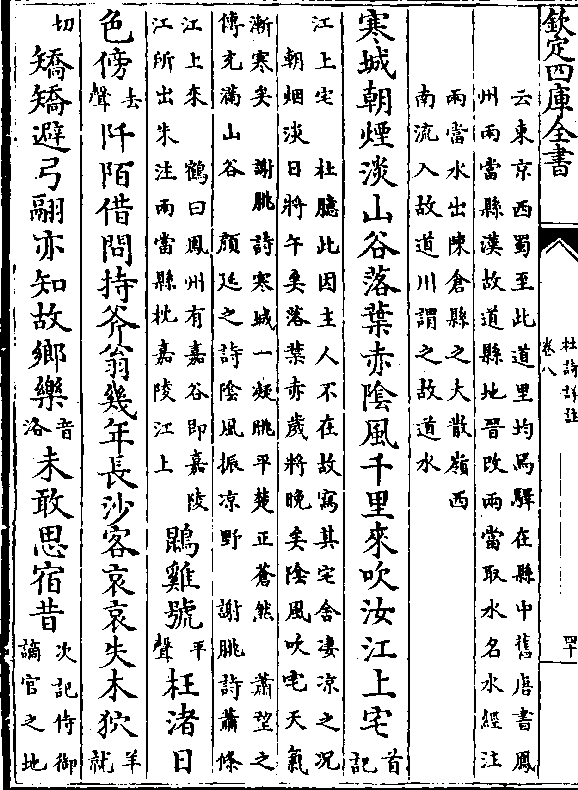 欽定四庫全書
杜詩詳註
卷八
四十
云東京西蜀至此道里均爲驛在縣中舊唐書鳳
州兩當縣漢故道縣地晉改兩當取水名水經注
兩當水出陳倉縣之大散嶺西
南流入故道川謂之故道水
寒城朝煙淡山谷落葉赤陰風千里來吹汝江上宅首
記
江上宅　杜臆此因主人不在故寫其宅舍凄凉之况
朝烟淡日將午矣落葉赤歲將晚矣陰風吹宅天氣
漸寒矣　謝朓詩寒城一凝眺平楚正蒼然　蕭望之
傳充滿山谷　顔延之詩陰風振凉野　謝朓詩蕭條
江上來　鶴曰鳳州有嘉谷即嘉陵
江所出朱注兩當縣枕嘉陵江上
鵾雞號平
聲枉渚日
色傍去
聲阡陌借問持斧翁幾年長沙客哀哀失木狖羊
就
切矯矯避弓翮亦知故鄉樂音
洛未敢思宿昔次記侍御
謫官之地